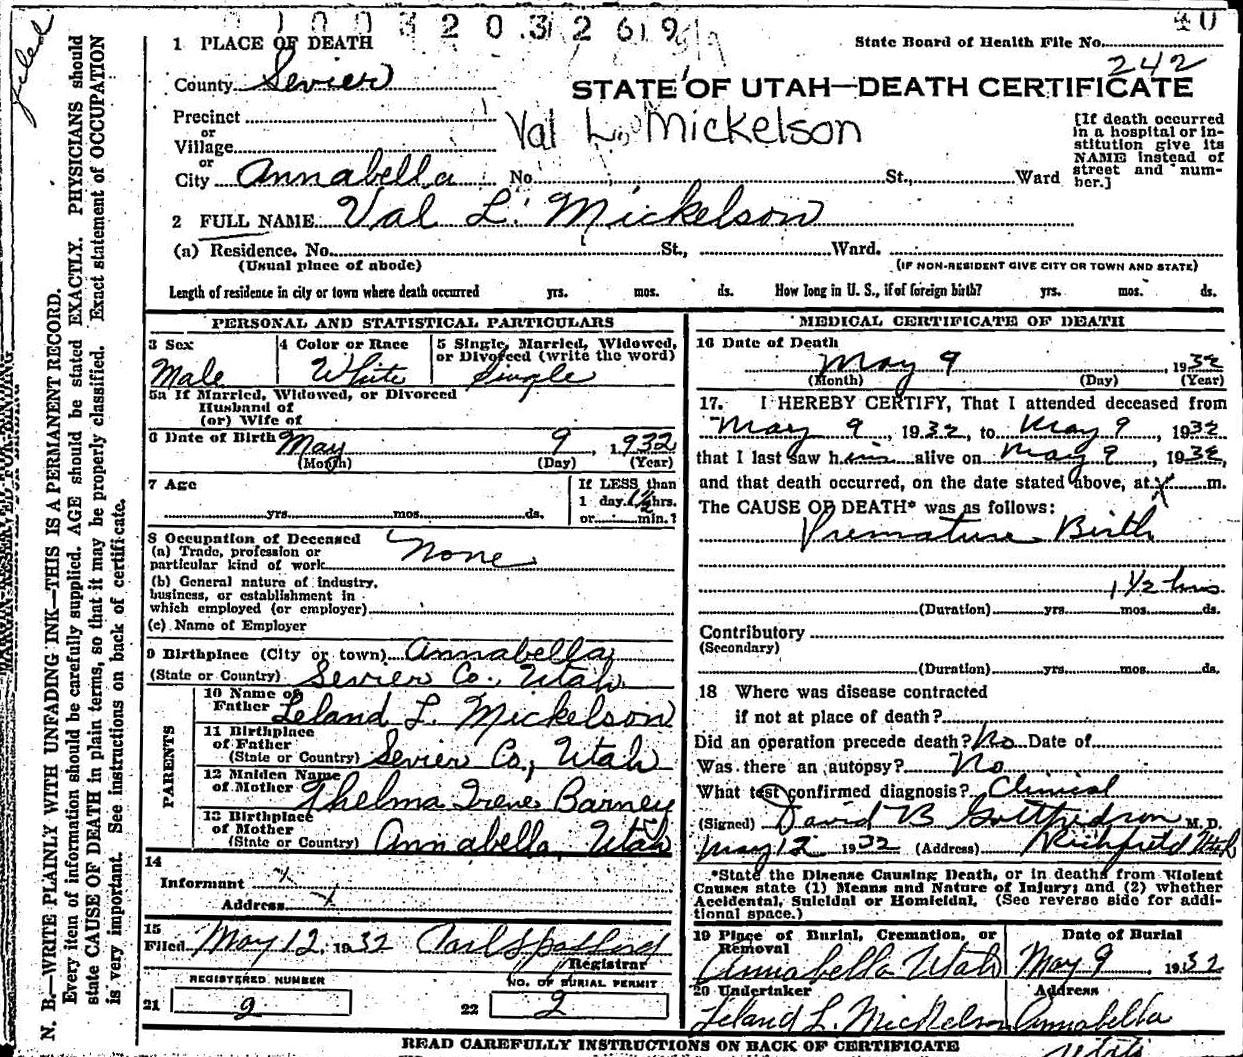 0 1 0 0 3 2 0 3 2 6 9
40
1 PLACE OF DEATH
State Board of Health File No.
242
County Sevier
STATE OF UTAH—DEATH CERTIFICATE
Precinct
or
Village
or
City Annabella No. St., Ward
Val L. Mickelson
[If death occurred
in a hospital or in-
stitution give its
NAME instead of
street and num-
ber.]
2 FULL NAME Val L. Mickelson
(a) Residence. No. St., Ward.
(Usual place of abode) (IF NON-RESIDENT GIVE CITY OR TOWN AND STATE)
Length of residence in city or town where death occurred yrs. mos. ds. How long in U. S., if of foreign birth? yrs. mos. ds.
PERSONAL AND STATISTICAL PARTICULARS
3 Sex
Male
4 Color or Race
White
5 Single, Married, Widowed,
or Divorced (write the word)
Single
5a If Married, Widowed, or Divorced
Husband of
(or) Wife of
6 Date of Birth May 9 1932
(Month) (Day) (Year)
7 Age
yrs. mos. ds.
If LESS than
1 day 1½ hrs.
or min.?
8 Occupation of Deceased
(a) Trade, profession or
particular kind of work None
(b) General nature of industry,
business, or establishment in
which employed (or employer)
(c) Name of Employer
9 Birthplace (City or town) Annabella
(State or Country) Sevier Co., Utah
PARENTS
10 Name of
Father Leland L. Mickelson
11 Birthplace
of Father
(State or Country) Sevier Co., Utah
12 Maiden Name
of Mother Thelma Irene Barney
13 Birthplace
of Mother
(State or Country) Annabella, Utah
14
Informant
Address
15
Filed May 12, 1932
Registrar
REGISTERED NUMBER
21 9
NO. OF BURIAL PERMIT
22 2
MEDICAL CERTIFICATE OF DEATH
16 Date of Death
May 9, 1932
(Month) (Day) (Year)
17. I HEREBY CERTIFY, That I attended deceased from
May 9, 1932, to May 9, 1932
that I last saw him alive on May 9, 1932,
and that death occurred, on the date stated above, at X m.
The CAUSE OF DEATH* was as follows:
Premature Birth
1 ½ hrs
(Duration) yrs. mos. ds.
Contributory
(Secondary)
(Duration) yrs. mos. ds.
18 Where was disease contracted
if not at place of death?
Did an operation precede death? No Date of
Was there an autopsy? No
What test confirmed diagnosis? Clinical
(Signed) David B Gottfredson M. D.
May 12 1932 (Address) Richfield Utah
*State the Disease Causing Death, or in deaths from Violent
Causes state (1) Means and Nature of Injury; and (2) whether
Accidental, Suicidal or Homicidal. (See reverse side for addi-
tional space.)
19 Place of Burial, Cremation, or
Removal
Annabella Utah
Date of Burial
May 9, 1932
20 Undertaker
Leland L. Mickelson
Address
Annabella
Utah
READ CAREFULLY INSTRUCTIONS ON BACK OF CERTIFICATE
filed
MARGIN RESERVED FOR BINDING
N. B.—WRITE PLAINLY WITH UNFADING INK—THIS IS A PERMANENT RECORD.
Every item of information should be carefully supplied. AGE should be stated EXACTLY. PHYSICIANS should
state CAUSE OF DEATH in plain terms, so that it may be properly classified. Exact statement of OCCUPATION
is very important. See instructions on back of certificate.